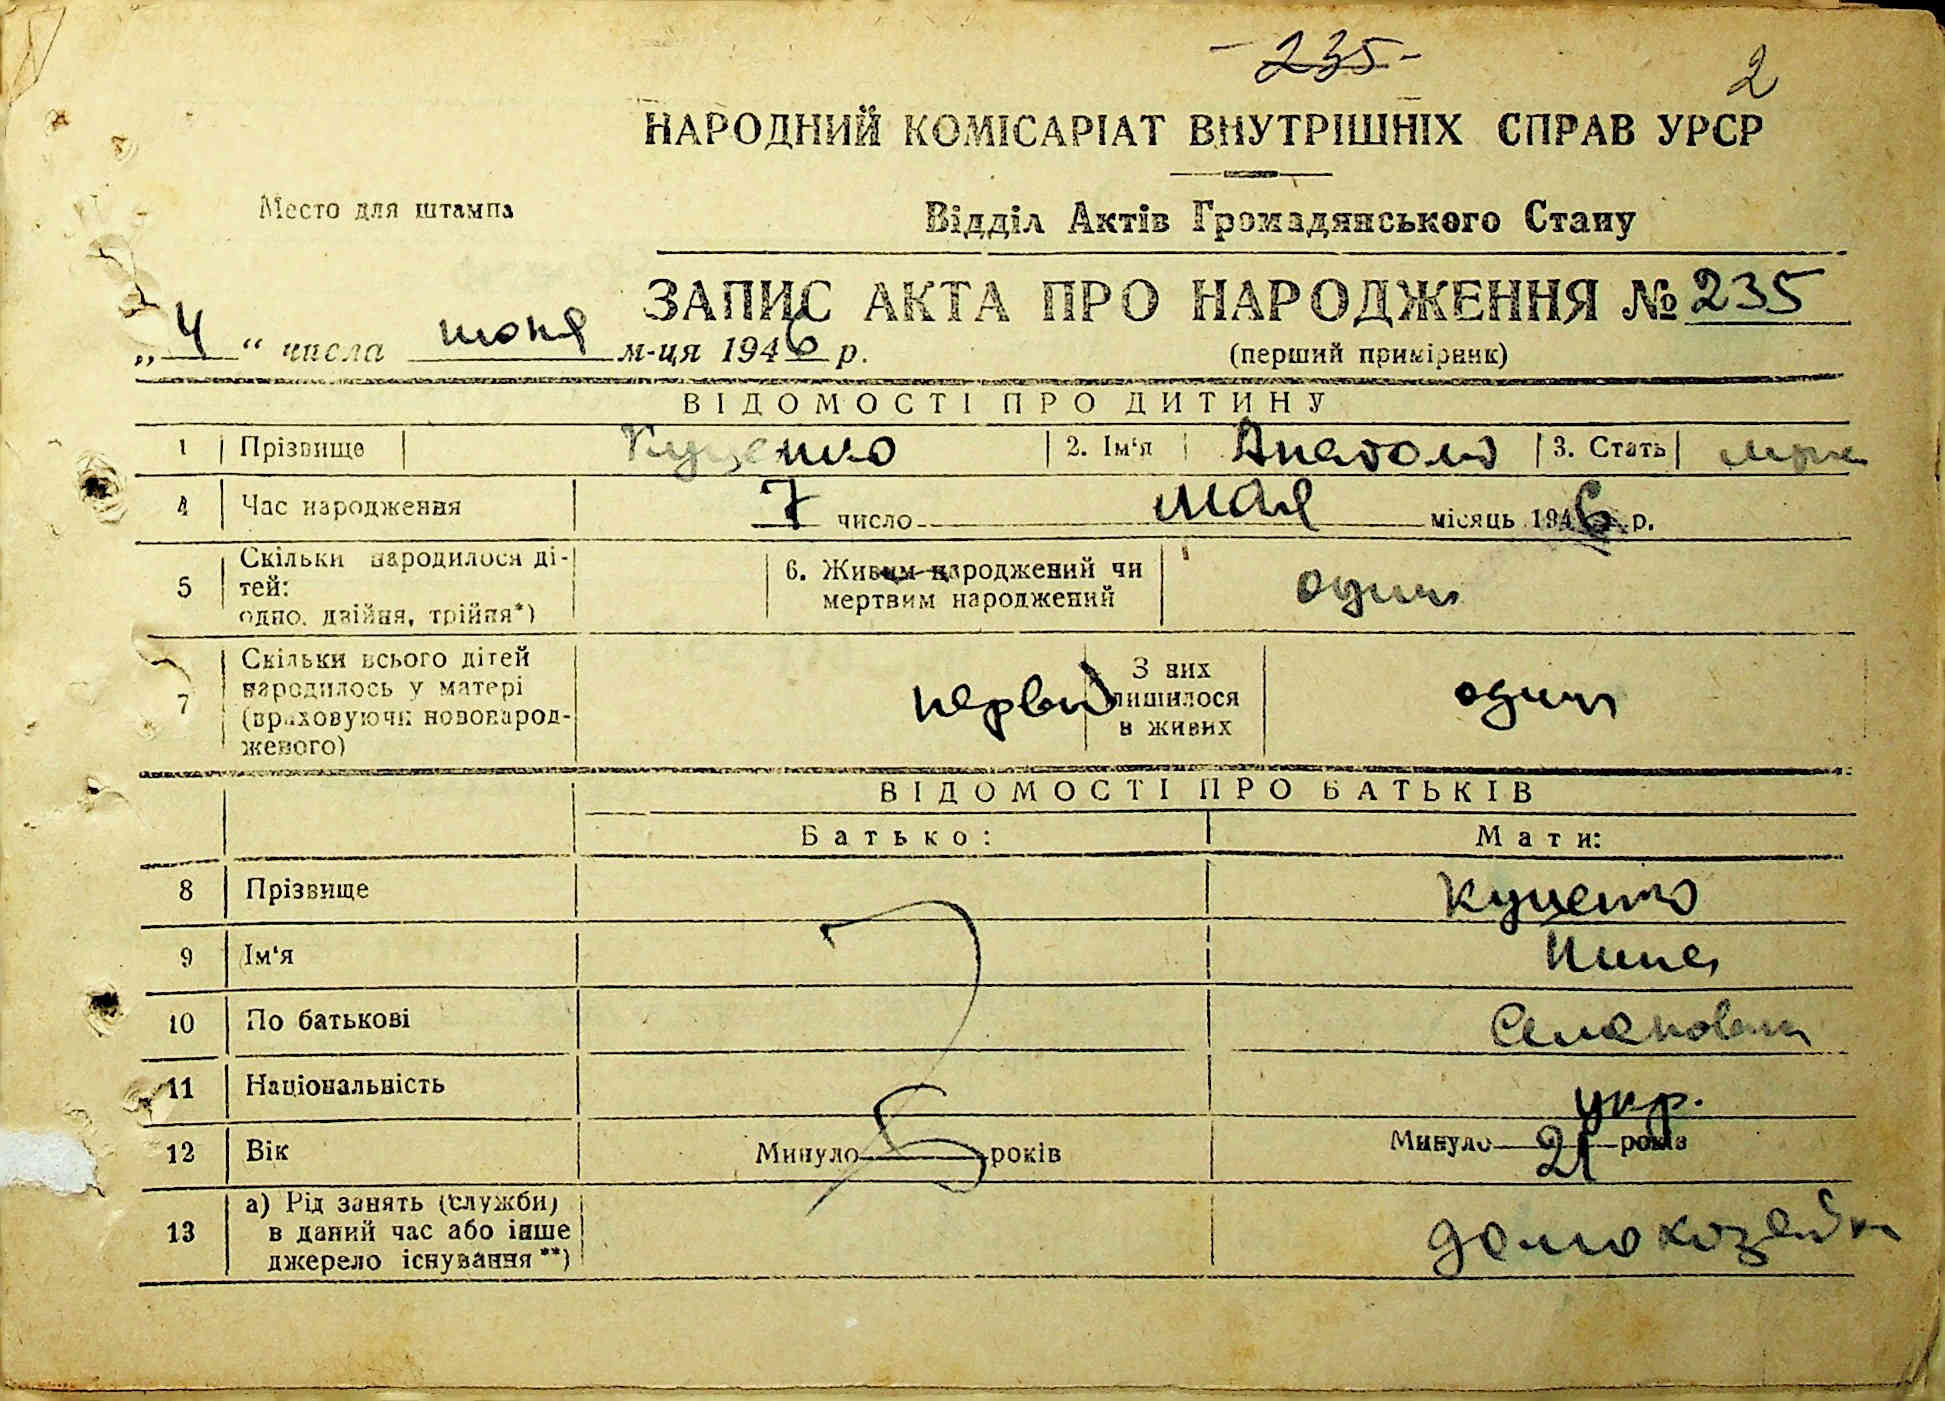 -235-
2
НАРОДНИЙ КОМІСАРІАТ ВНУТРІШНІХ СПРАВ УРСР
Место для штампа
Відділ Актів Громадянського Стану
ЗАПИС АКТА ПРО НАРОДЖЕННЯ № 235
„4“ числа июня м-ця 1946 р.
(перший примірник)
ВІДОМОСТІ ПРО ДИТИНУ
1 Прізвище Куценко 2. Ім'я Анатолий 3. Стать муж
4 Час народження 7 число мая місяць 1946 р.
5 Скільки народилося ді-
тей:
одно, двійня, трійня*)
6. Живим народжений чи
мертвим народжений
один
7 Скільки всього дітей
народилось у матері
(враховуючи новонарод-
женого)
первый
З них
лишилося
в живих
один
ВІДОМОСТІ ПРО БАТЬКІВ
Батько: Мати:
8 Прізвище Куценко
9 Ім'я Нина
10 По батькові Семеновна
11 Національність укр.
12 Вік Минуло років Минуло 21 років
13 а) Рід занять (служби)
в даний час або інше
джерело існування**)
домохозяйка